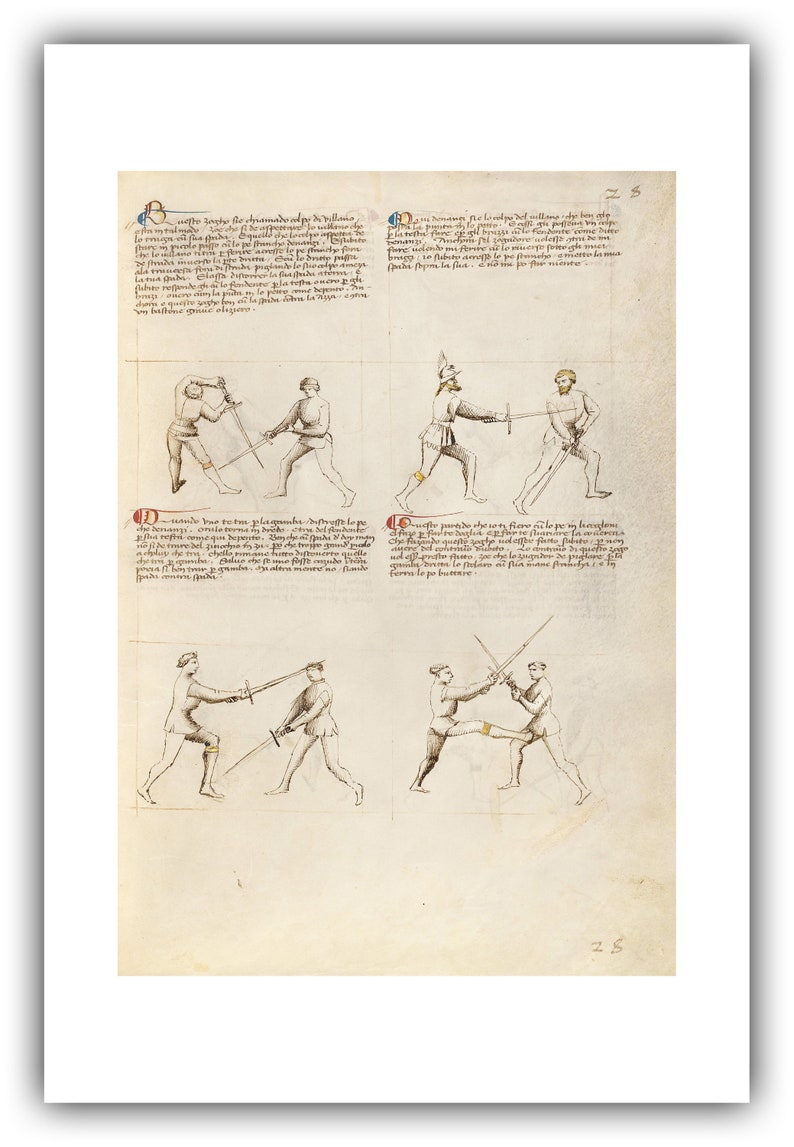 Z 8
Questo zogho sie chiamado colpo di villano,
e sta in tal modo. Zoe che si de aspettare lo villano che
lo traga cū sua spada. E quello che lo colpo aspetta de
stare in picolo passo cū lo pe stancho denanzi. E subito
che lo villano ti tra p ferire acresse lo pe stancho fora
de strada inverso la pte dritta. E cū lo dritto passa
ala traversa fora di strada pigliando lo suo colpo a meza
la tua spada. E lassa discorrer la sua spada a terra, e
subito respondegli cū lo fendente p la testa overo p gli
brazi, overo cum la pūta in lo petto come depento. An-
chora e questo zogho bon cū la spada cōtra la azza, e cōtra
un bastone grave o liziero.
Qui denanzi sie lo colpo del villano, che ben gli ò
posta la punta in lo petto. E cossi gli posseva un colpo
p la testa fare e p gli brazzi cū lo fendente come ditto
denanzi. Anchora sel zogadore volesse cōtra de mi
fare volendo mi ferire cū lo riverso sotto gli mei
brazzi, io subito acresso lo pe stancho, e metto la mia
spada sopra la sua. e no mi po far niente.
Quando uno te tra p la gamba, discresse lo pe
che denanzi. o tu lo torna in dredo. e tra del fendente
p sua testa come qui depento. Ben che cū spada di doy man
no si de trare del zinochio in zu. Pō che troppo grand piculo
a chaluy che tra. Chello rimane tutto discoverto quello
che tra p gamba. Salvo che se uno fosse cazudo ī terra
poria si ben trar p gamba, ma altramente no, siando
spada contra spada.
Questo partido che io ti fiero cū lo pe in li cogloni
el fazo p farte doglia, e p far te svariare la coverta.
Che fazando questo zogho vol essere fatto subito, p non
avere del contrario dubito. Lo contrario di questo zogo
vol esser presto fatto, zoe che lo zugadore de pigliare p la
gamba dritta lo scolaro cū sua mane stancha, e in
terra lo po buttare.
Z 8